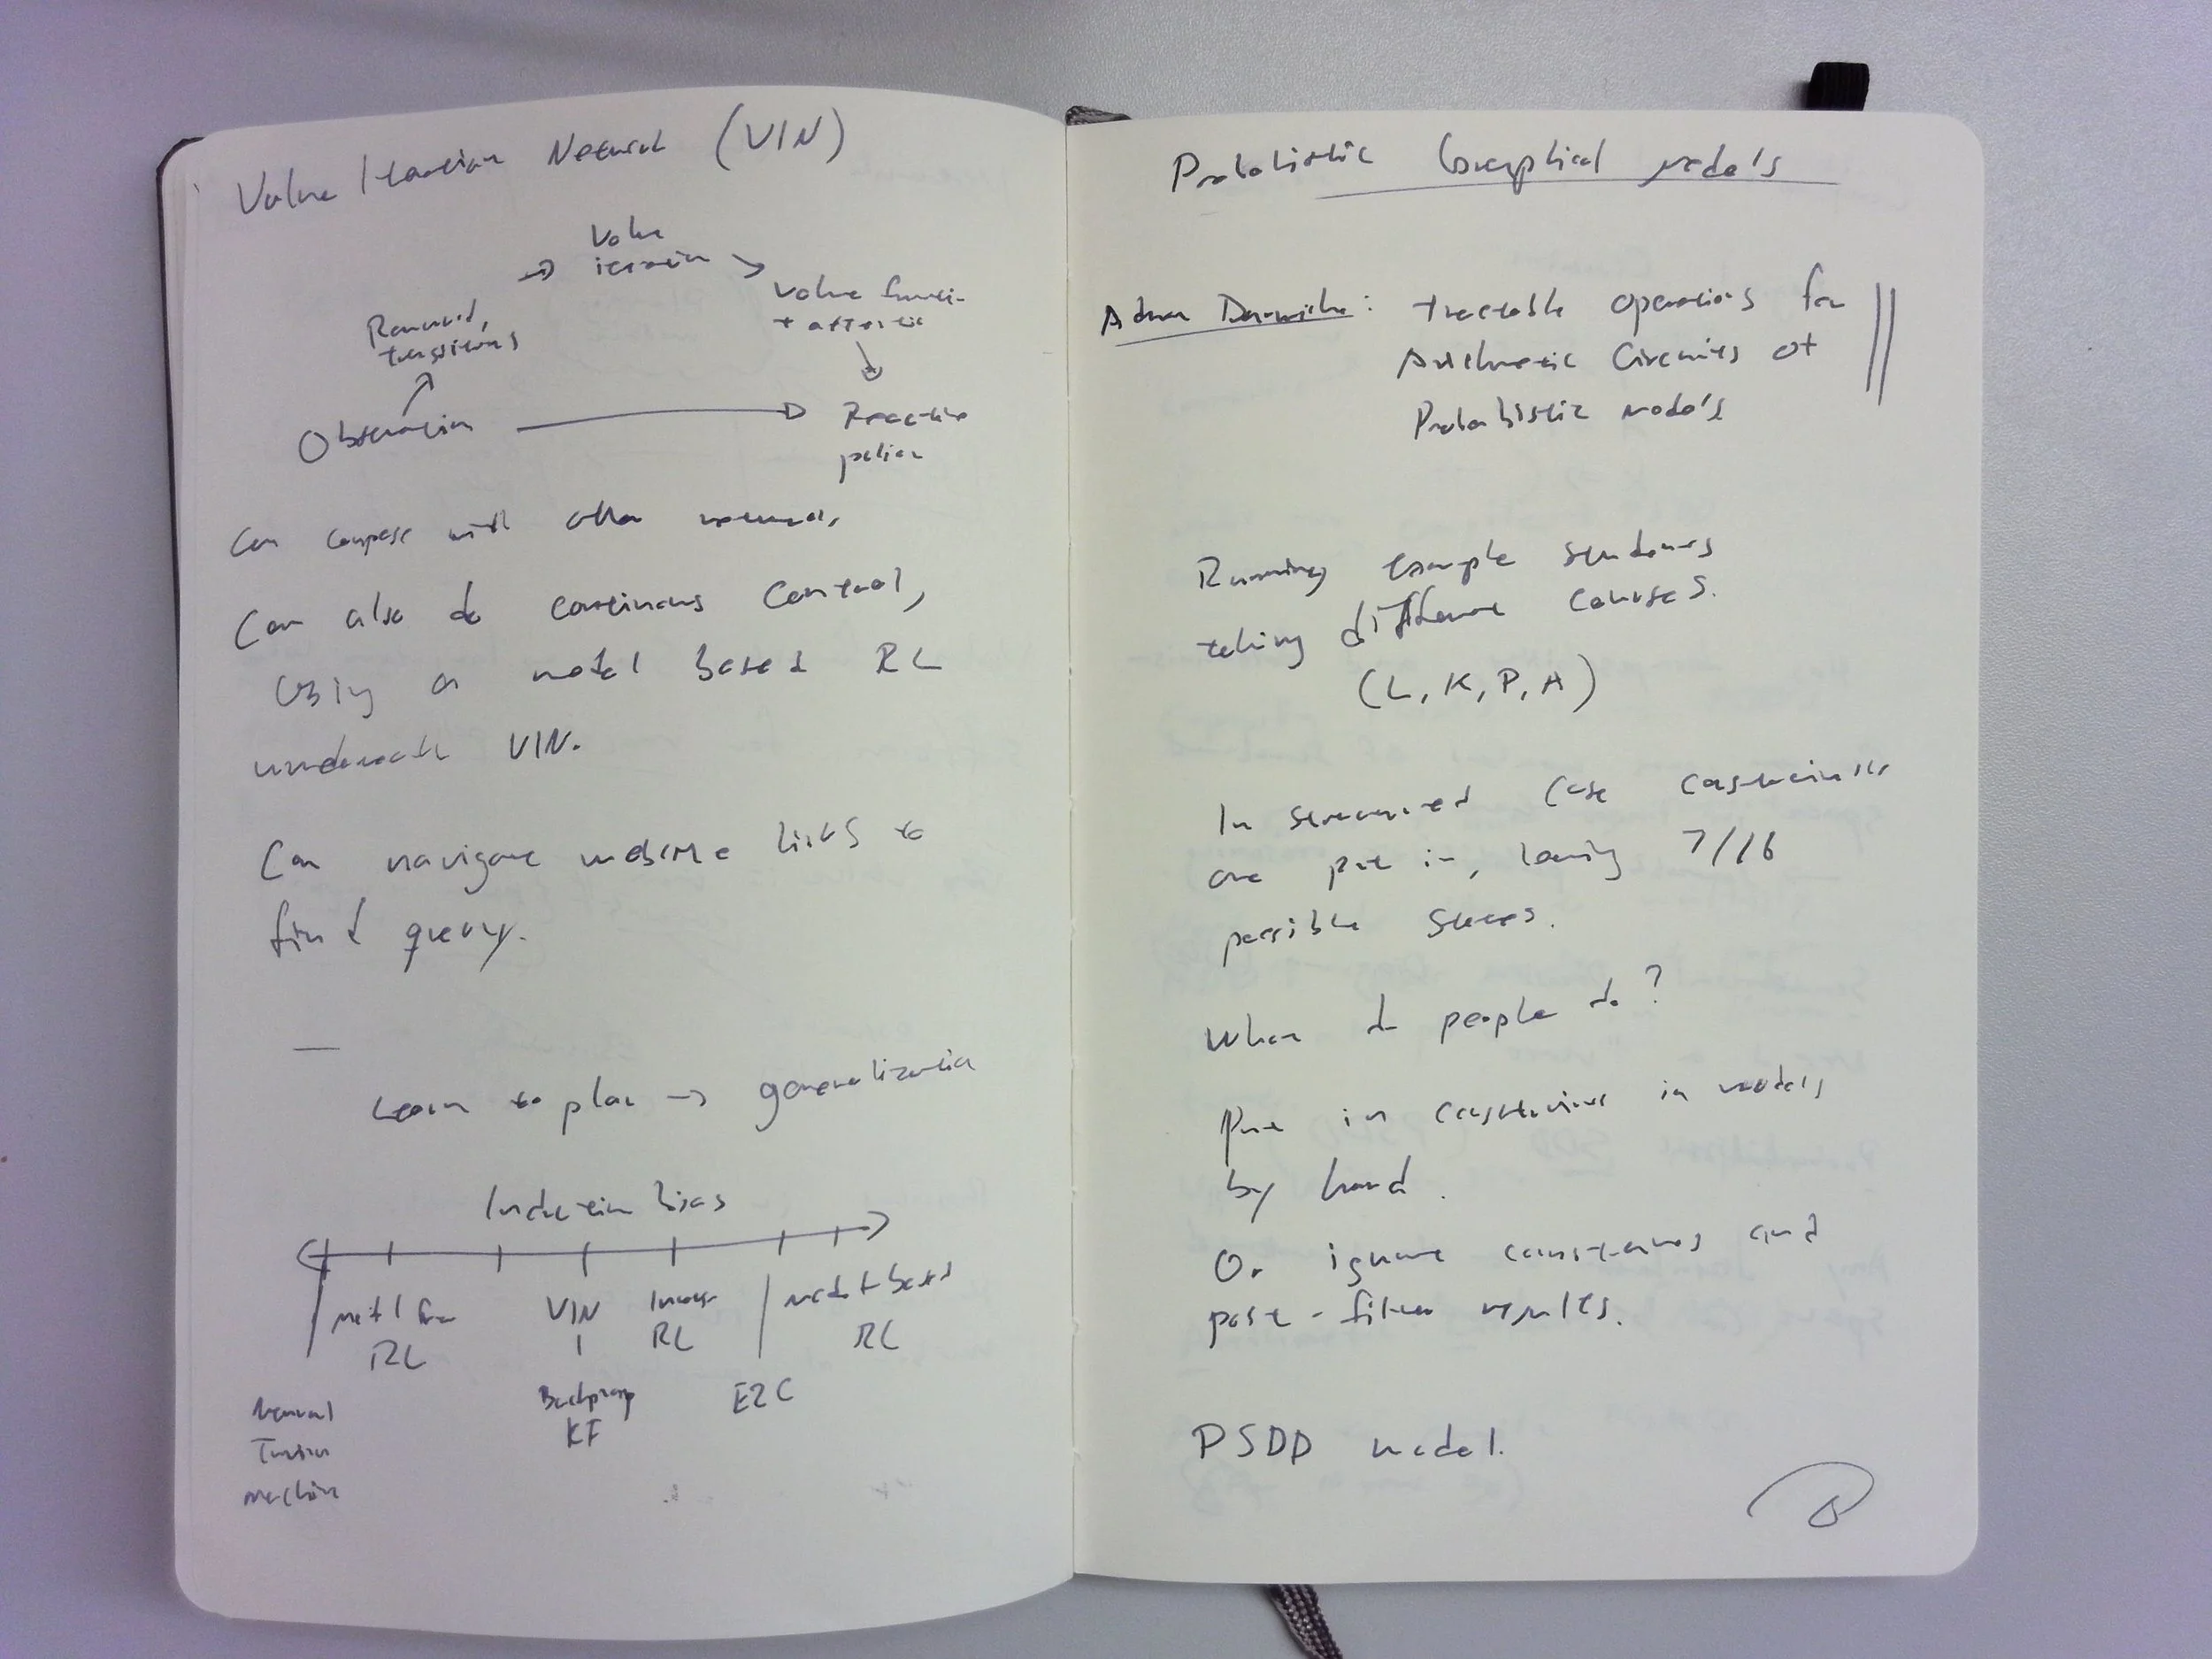 Value Iteration Network (VIN)
Value
iteration
Reward,
transitions
Value functi-
+ attention
Observation
Reactive
policy
Can compose with other networks,
Can also do continuous control,
Using a model based RL
underneath VIN.
Can navigate website links to
find query.
Learn to plan → generalization
Induction bias
model free
RL
VIN
Inverse
RL
model-based
RL
Backprop
KF
E2C
Neural
Turing
machine
Probabilistic Graphical models
Adnan Darwiche: tractable operations for
Arithmetic Circuits of
Probabilistic models
Running example students
taking different courses.
(L, K, P, A)
In structured case constraints
are put in, leaving 7/16
possible states.
What do people do?
Put in constraints in models
by hand.
Or ignore constraints and
post-filter results.
PSDD model.